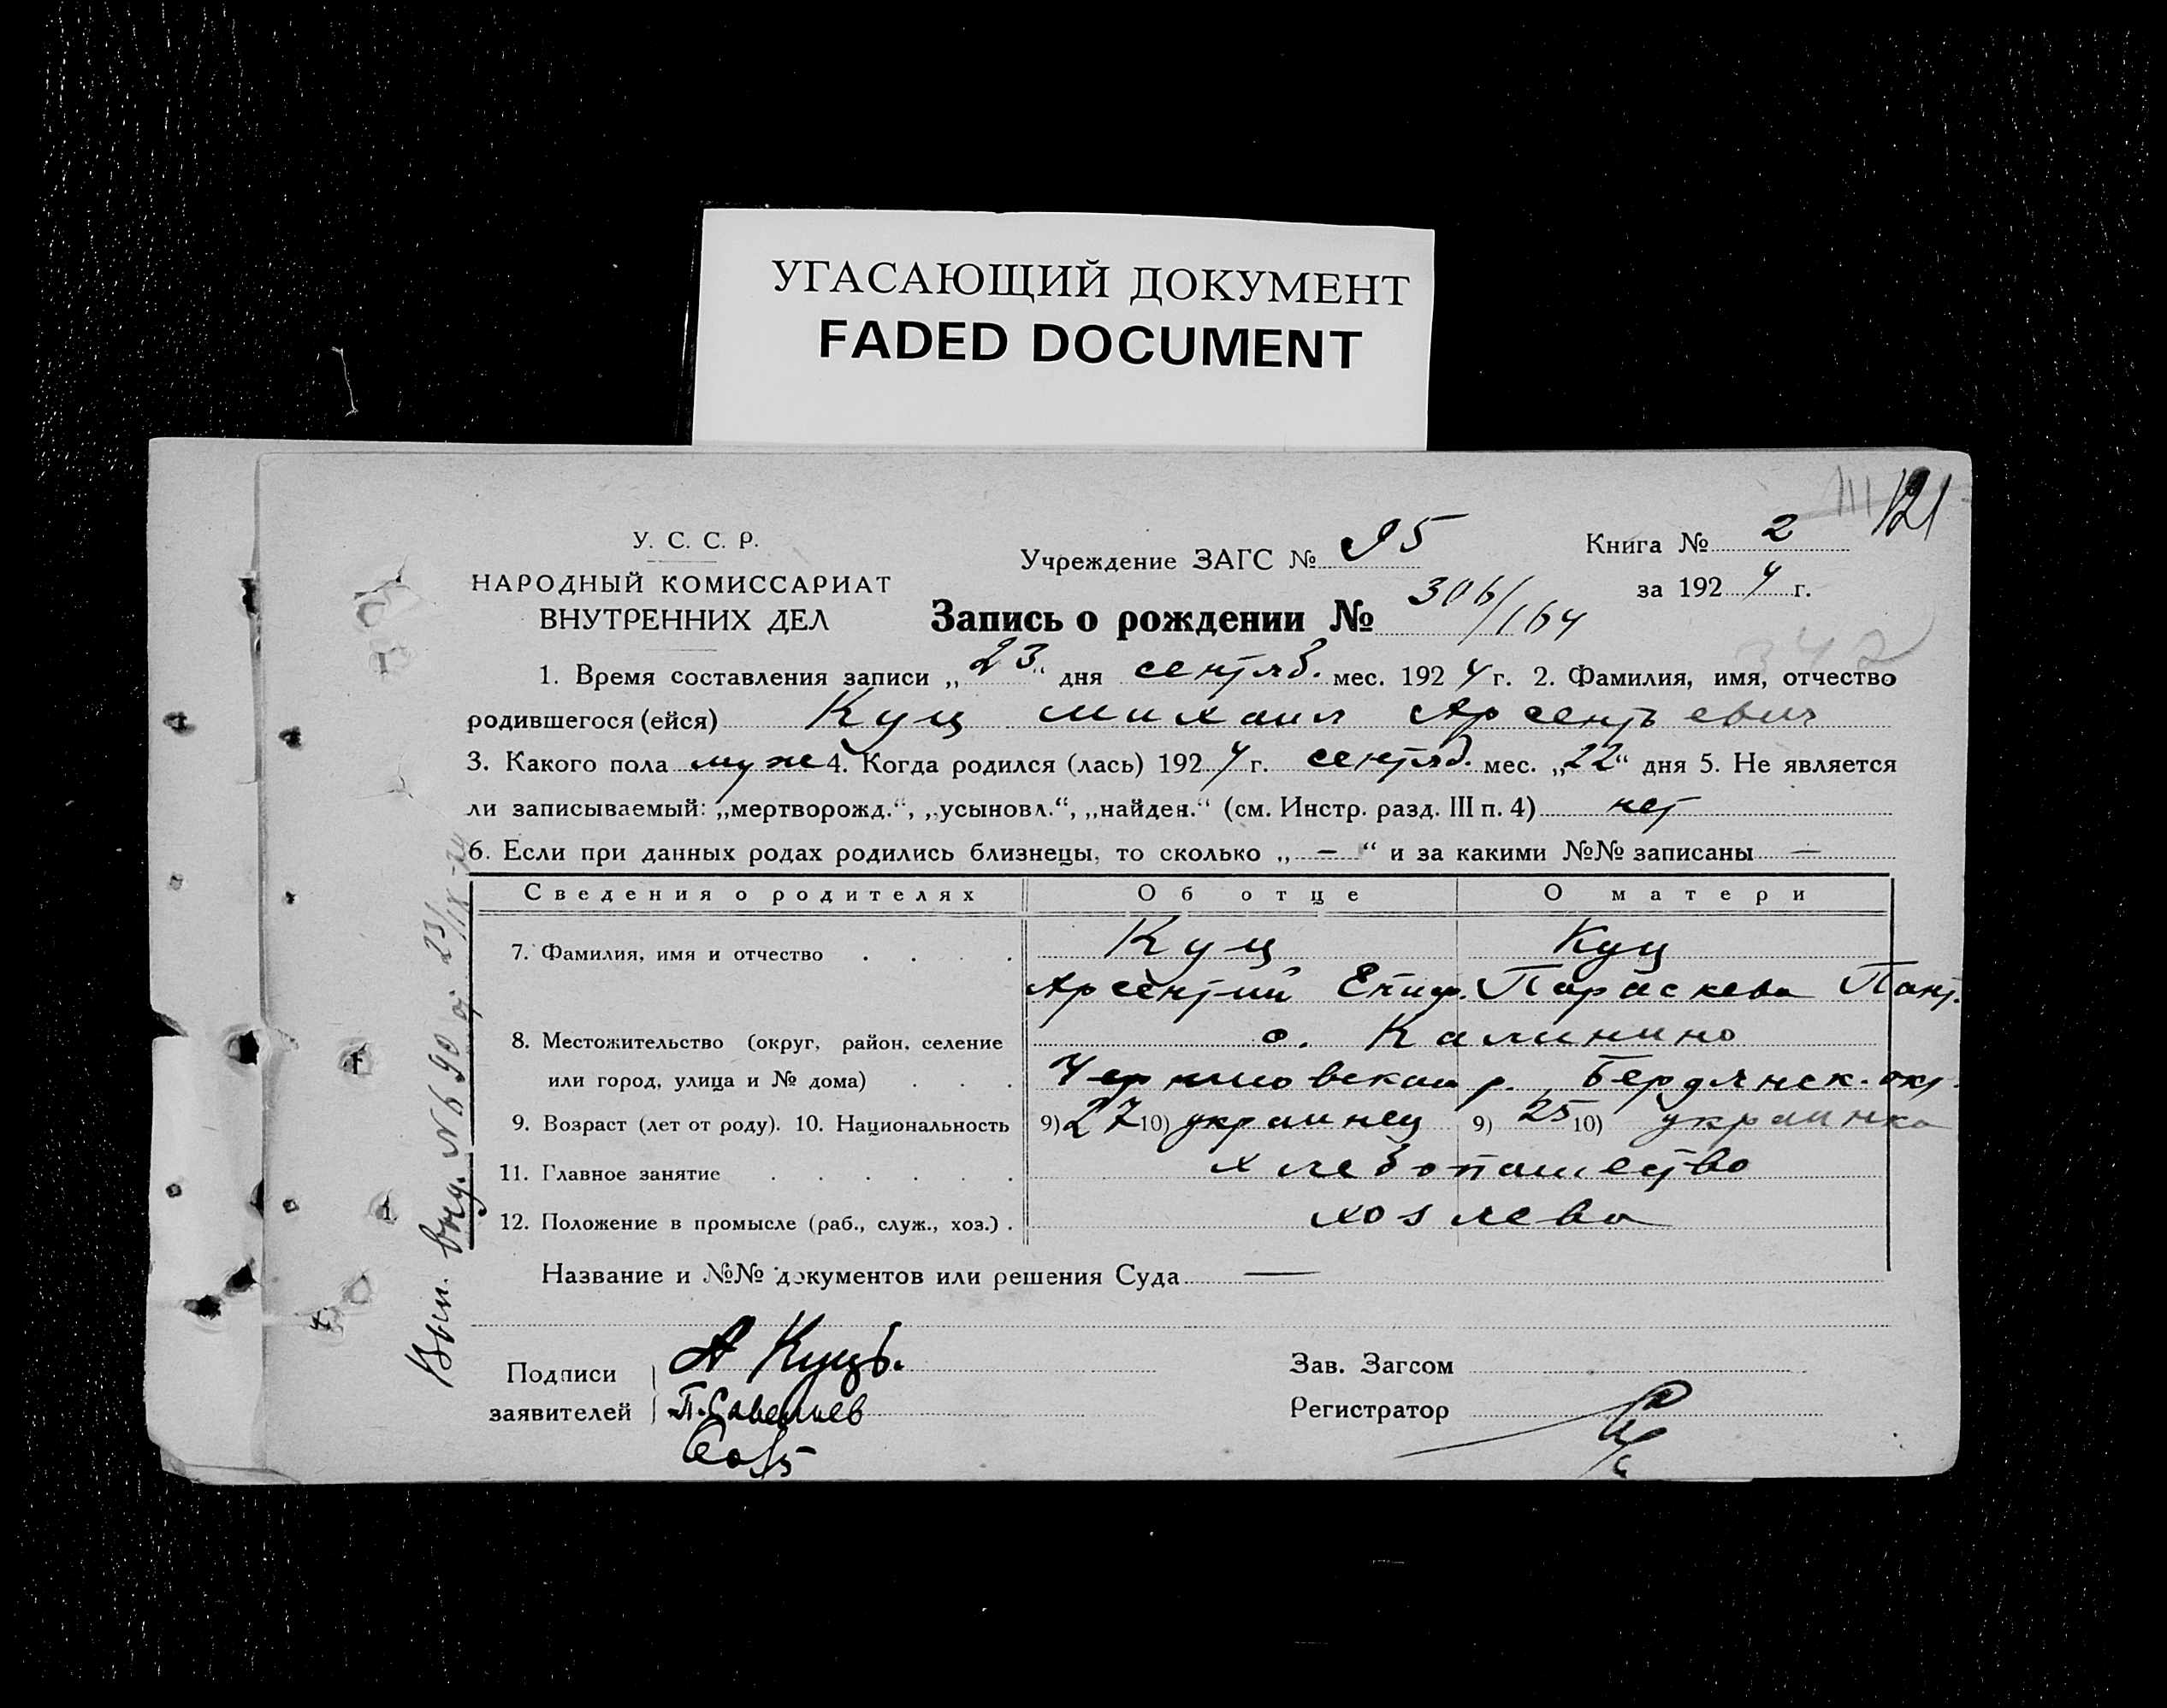 УГАСАЮЩИЙ ДОКУМЕНТ
FADED DOCUMENT
121
У. С. С. Р.
НАРОДНЫЙ КОМИССАРИАТ
ВНУТРЕННИХ ДЕЛ
Учреждение ЗАГС № 95
Книга № 2
за 1924 г.
Запись о рождении № 306/164
342
1. Время составления записи „23“ дня сентяб. мес. 1924 г. 2. Фамилия, имя, отчество
родившегося (ейся) Куц Михаил Арсентьевич
3. Какого пола муж 4. Когда родился (лась) 1924 г. сентяб. мес. „22“ дня 5. Не является
ли записываемый: „мертворожд.“, „усыновл.“, „найден.“ (см. Инстр. разд. III п. 4) нет
6. Если при данных родах родились близнецы, то сколько „—“ и за какими №№ записаны —
Сведения о родителях Об отце О матери
7. Фамилия, имя и отчество Куц Куц
Арсентий Епиф. Параскева Пант.
8. Местожительство (округ, район, селение с. Калинино
или город, улица и № дома) р. Бердянск. окр.
9. Возраст (лет от роду). 10. Национальность 9) 27 10) украинец 9) 25 10) украинка
11. Главное занятие хлебопашество
12. Положение в промысле (раб., служ., хоз.) хозяева
Название и №№ документов или решения Суда —
Подписи А Куцъ.
заявителей П. Савельев
Зав. Загсом
Регистратор
Вып. выд. № 690 от 23/IX-24